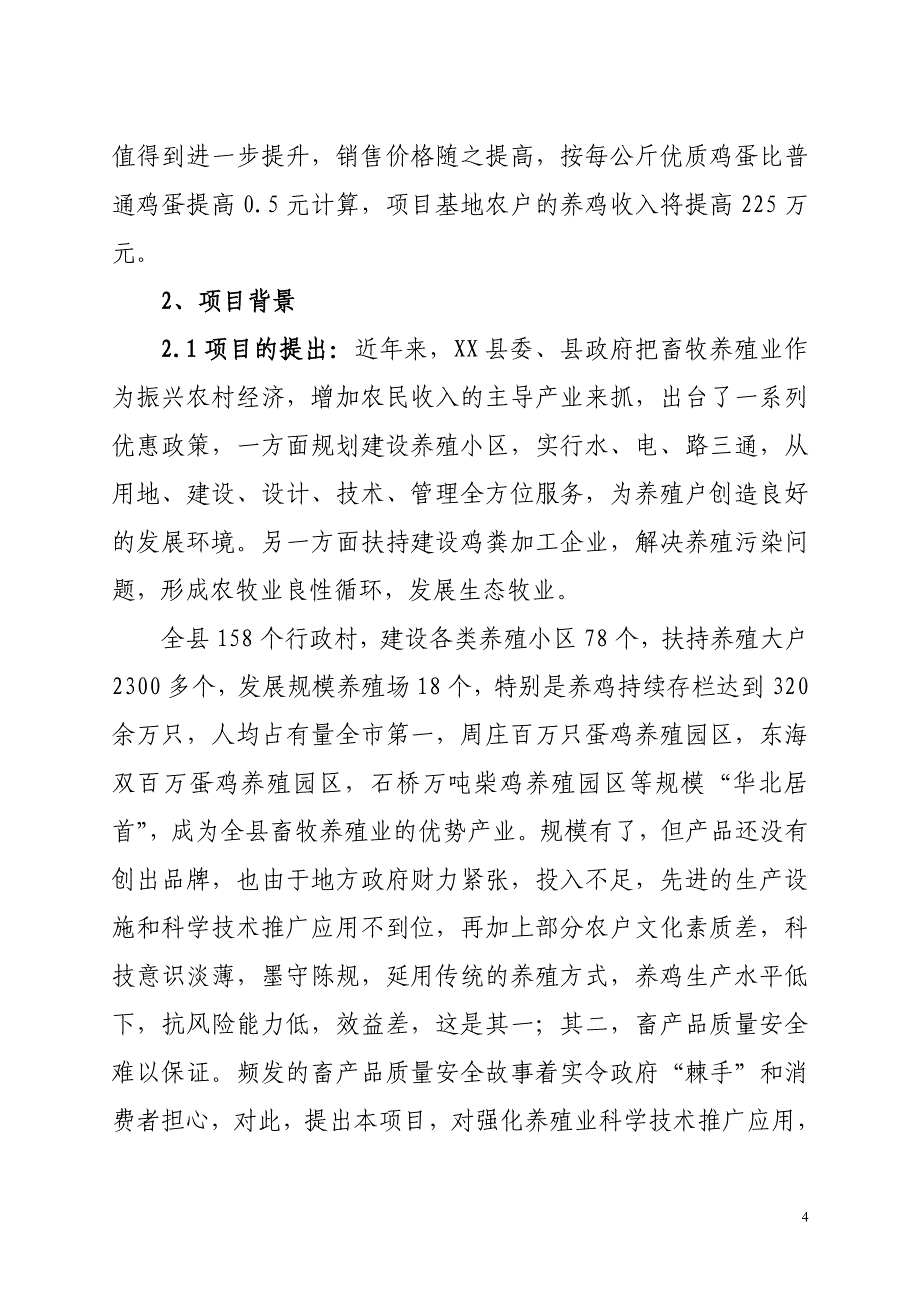 值得到进一步提升，销售价格随之提高，按每公斤优质鸡蛋比普
通鸡蛋提高 0.5 元计算，项目基地农户的养鸡收入将提高 225 万
元。
2、项目背景
2.1 项目的提出：近年来，XX 县委、县政府把畜牧养殖业作
为振兴农村经济，增加农民收入的主导产业来抓，出台了一系列
优惠政策，一方面规划建设养殖小区，实行水、电、路三通，从
用地、建设、设计、技术、管理全方位服务，为养殖户创造良好
的发展环境。另一方面扶持建设鸡粪加工企业，解决养殖污染问
题，形成农牧业良性循环，发展生态牧业。
全县 158 个行政村，建设各类养殖小区 78 个，扶持养殖大户
2300 多个，发展规模养殖场 18 个，特别是养鸡持续存栏达到 320
余万只，人均占有量全市第一，周庄百万只蛋鸡养殖园区，东海
双百万蛋鸡养殖园区，石桥万吨柴鸡养殖园区等规模“华北居
首”，成为全县畜牧养殖业的优势产业。规模有了，但产品还没有
创出品牌，也由于地方政府财力紧张，投入不足，先进的生产设
施和科学技术推广应用不到位，再加上部分农户文化素质差，科
技意识淡薄，墨守陈规，延用传统的养殖方式，养鸡生产水平低
下，抗风险能力低，效益差，这是其一；其二，畜产品质量安全
难以保证。频发的畜产品质量安全故事着实令政府“棘手”和消
费者担心，对此，提出本项目，对强化养殖业科学技术推广应用，
4